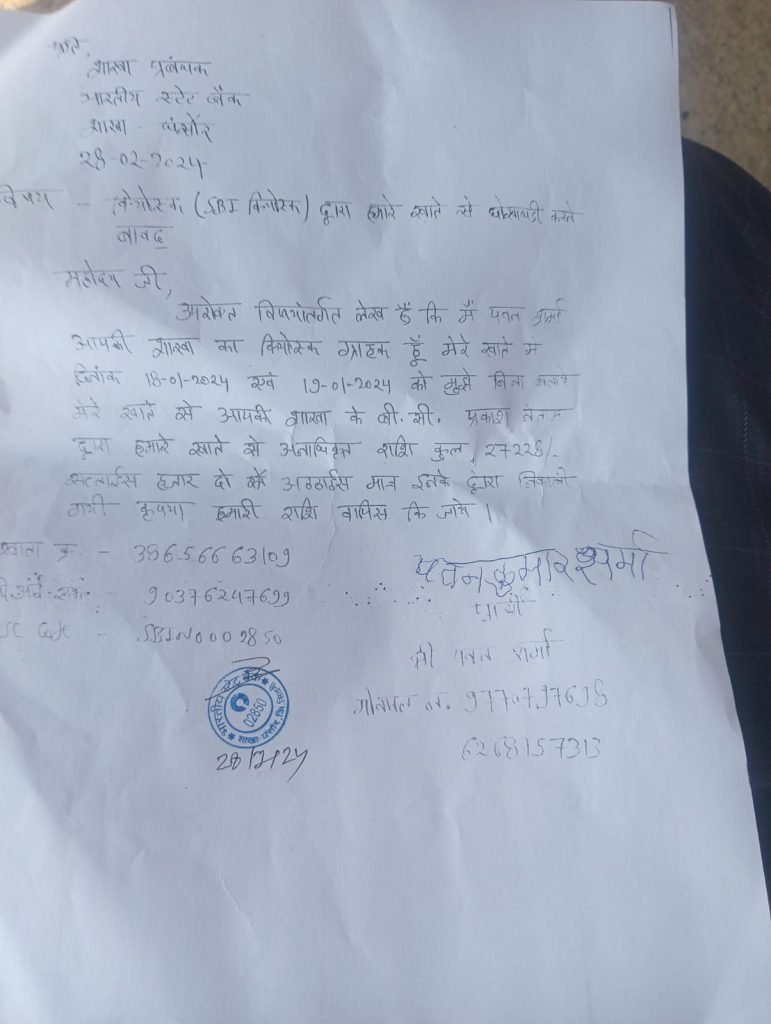 प्रति,
शाखा प्रबंधक
भारतीय स्टेट बैंक
शाखा - घंसौर
28-02-2024
विषय - कियोस्क (SBI कियोस्क) द्वारा हमारे खाते से धोखाधड़ी करने
बावद
महोदय जी,
उपरोक्त विषयांतर्गत लेख है कि मैं पवन शर्मा
आपकी शाखा का कियोस्क ग्राहक हूँ मेरे खाते में
दिनांक 18-01-2024 एवं 19-01-2024 को मुझे बिना बताये
मेरे खाते से आपकी शाखा के बी.सी. प्रकाश
द्वारा हमारे खाते से अनाधिकृत राशि कुल, 27228/-
सत्ताईस हजार दो सौ अठ्ठाईस मात्र इनके द्वारा निकाली
गयी कृपया हमारी राशि वापिस कि जाये ।
खाता क्र. - 38656663109
सी.आई.एफ. - 90376247699
SC Code - SBIN0002850
पवन कुमार शर्मा
प्रार्थी
श्री पवन शर्मा
मोबाइल न. 9770797698
6268157313
भारतीय स्टेट बैंक
02850
शाखा-घंसौर, जि. सिवनी
28/2/24